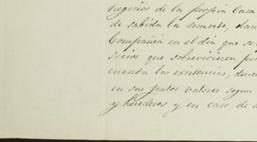 negocios de la propia Casa
de sabida la muerte, dan
Compañia en el dia que se
sicios que sobrevivieren
cuenta las existencias, deuc
en sus justos valores segun
y herederos y en caso de